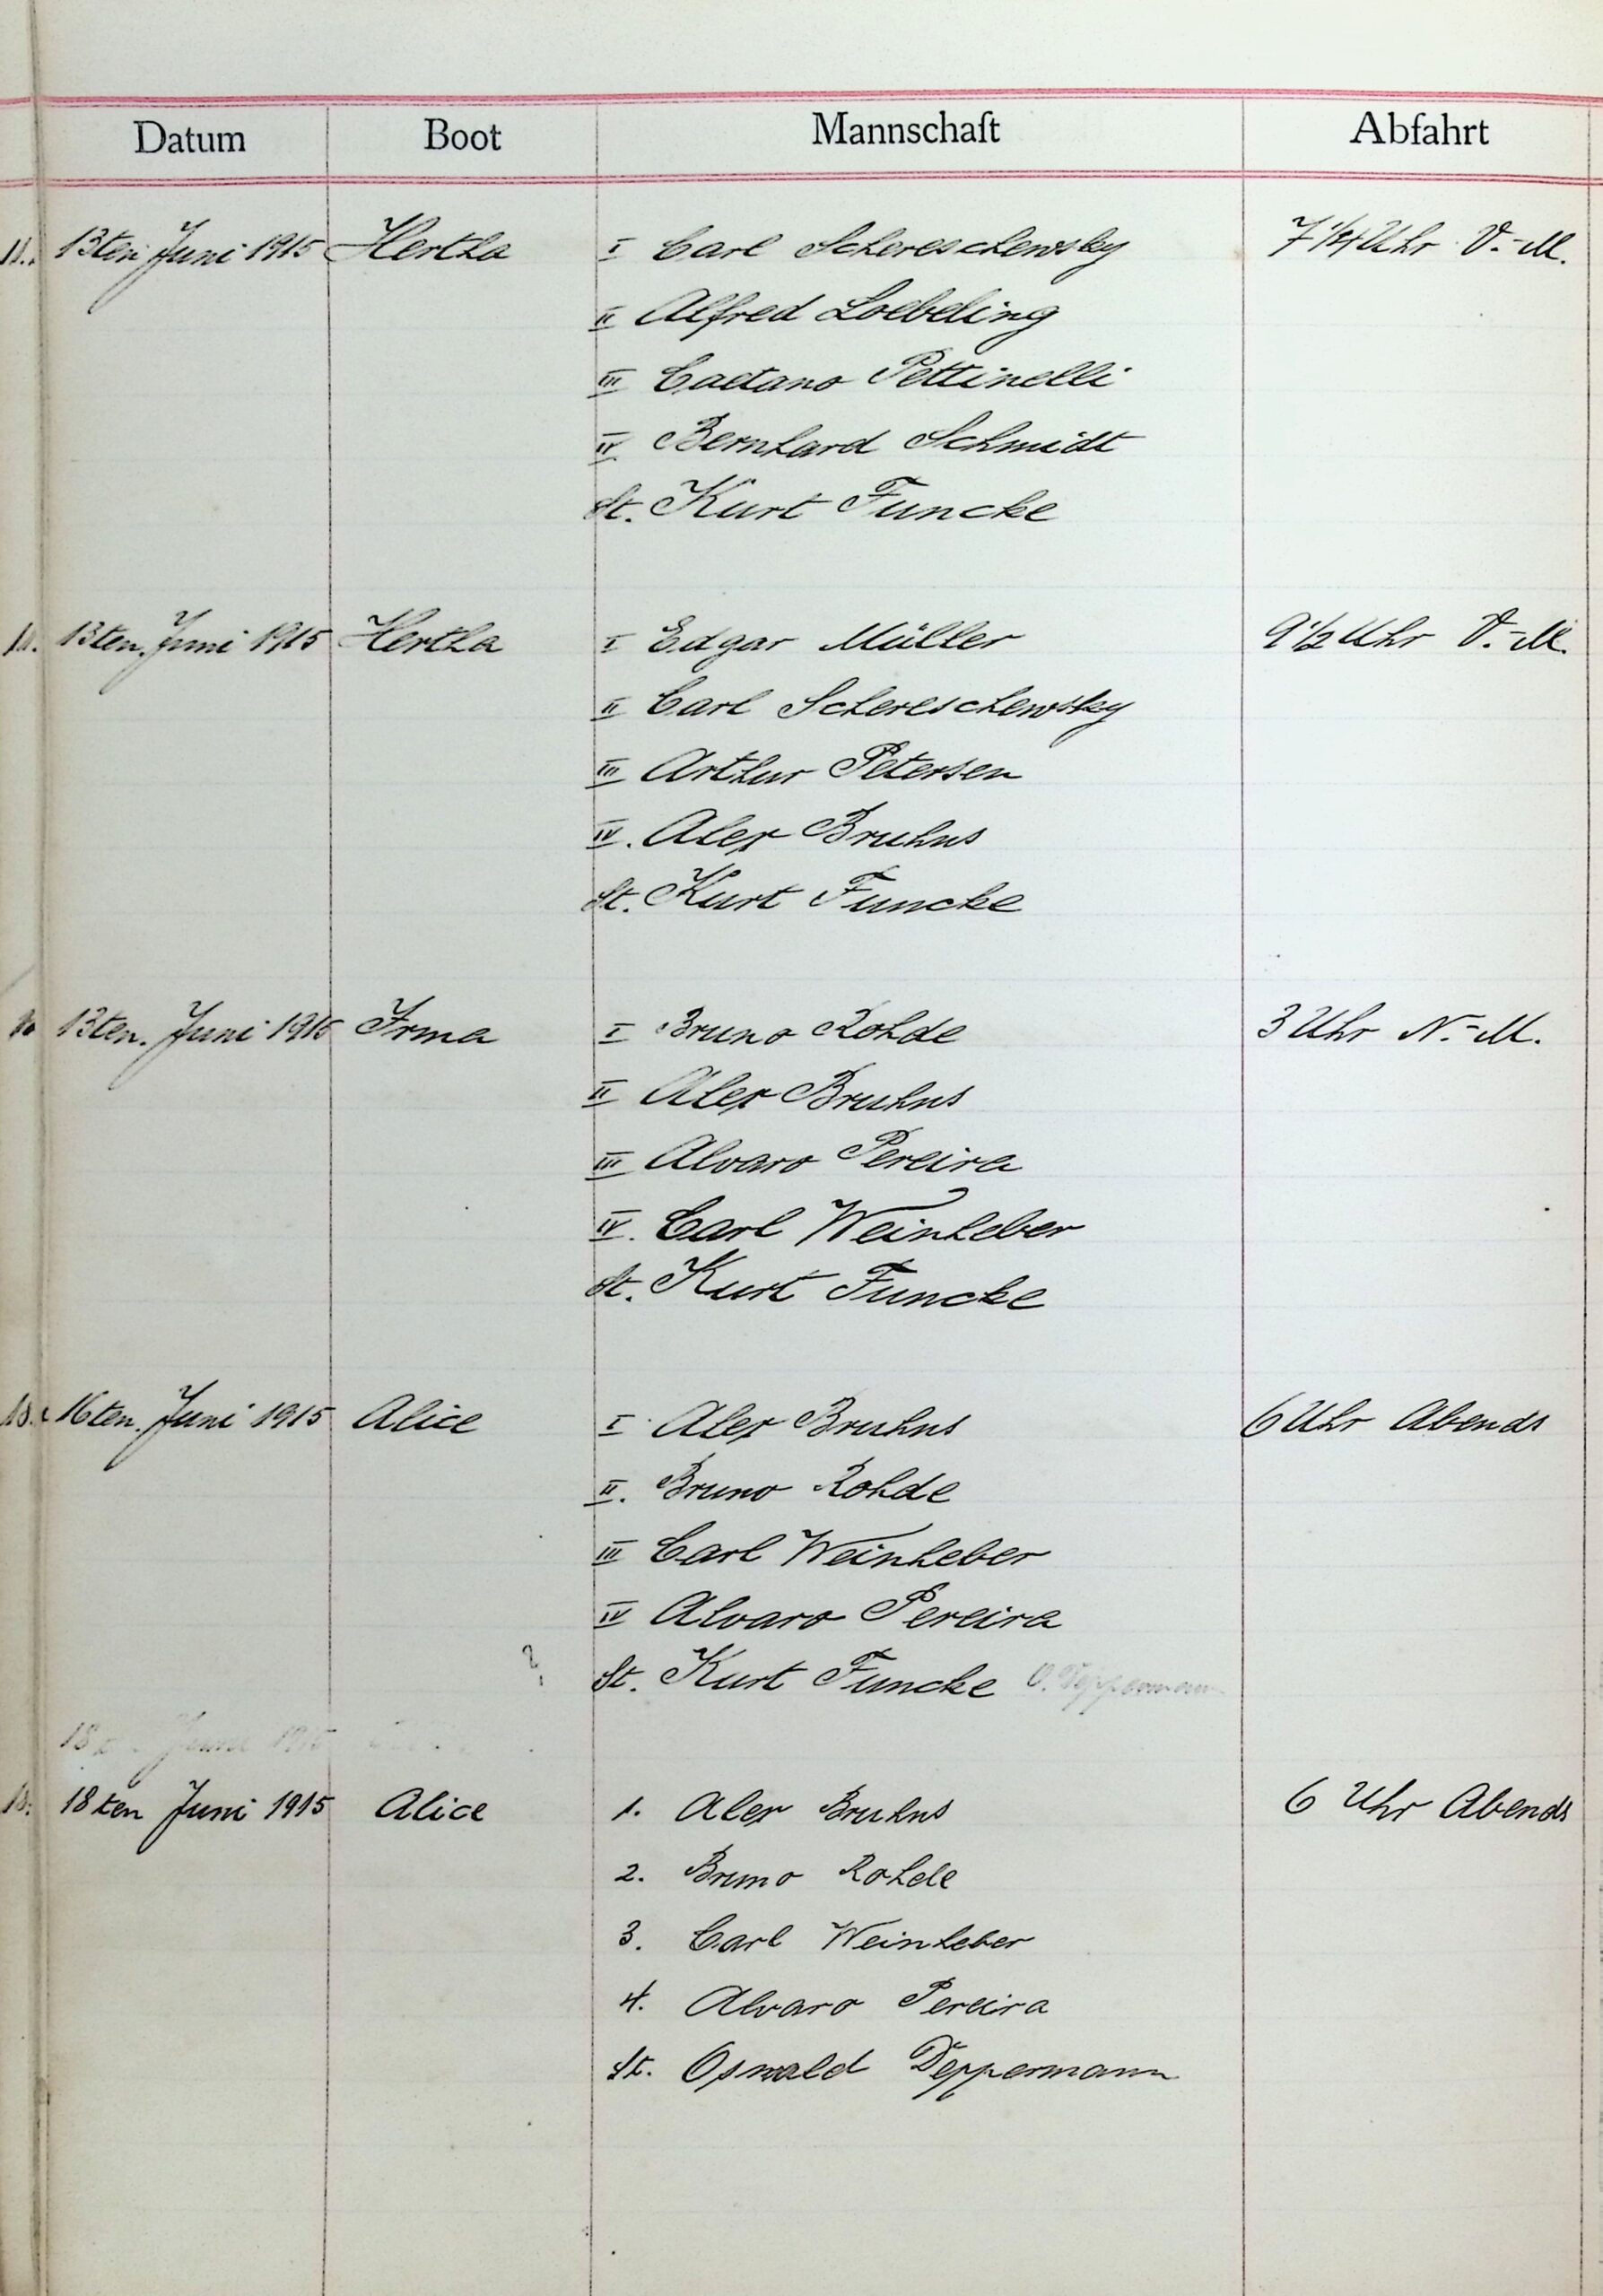 Datum Boot Mannschaft Abfahrt
13ten Juni 1915 Hertha I Carl Schereschewsky 7 1/4 Uhr V.-M.
II Alfred Loebeling
III Caetano Pettinelli
IV Bernhard Schmidt
St. Kurt Funcke
13ten. Juni 1915 Hertha I Edgar Müller 9 1/2 Uhr V.-M.
II Carl Schereschewsky
III Arthur Petersen
IV. Alex Bruhns
St. Kurt Funcke
13ten. Juni 1915 Irma I Bruno Rohde 3 Uhr N.-M.
II Alex Bruhns
III Alvaro Pereira
IV. Carl Weinheber
St. Kurt Funcke
16ten. Juni 1915 Alice I Alex Bruhns 6 Uhr Abends
II. Bruno Rohde
III Carl Weinheber
IV Alvaro Pereira
? St. Kurt Funcke O. Deppermann
18 Juni 1915
18ten Juni 1915 Alice 1. Alex Bruhns 6 Uhr Abends
2. Bruno Rohde
3. Carl Weinheber
4. Alvaro Pereira
St. Oswald Deppermann